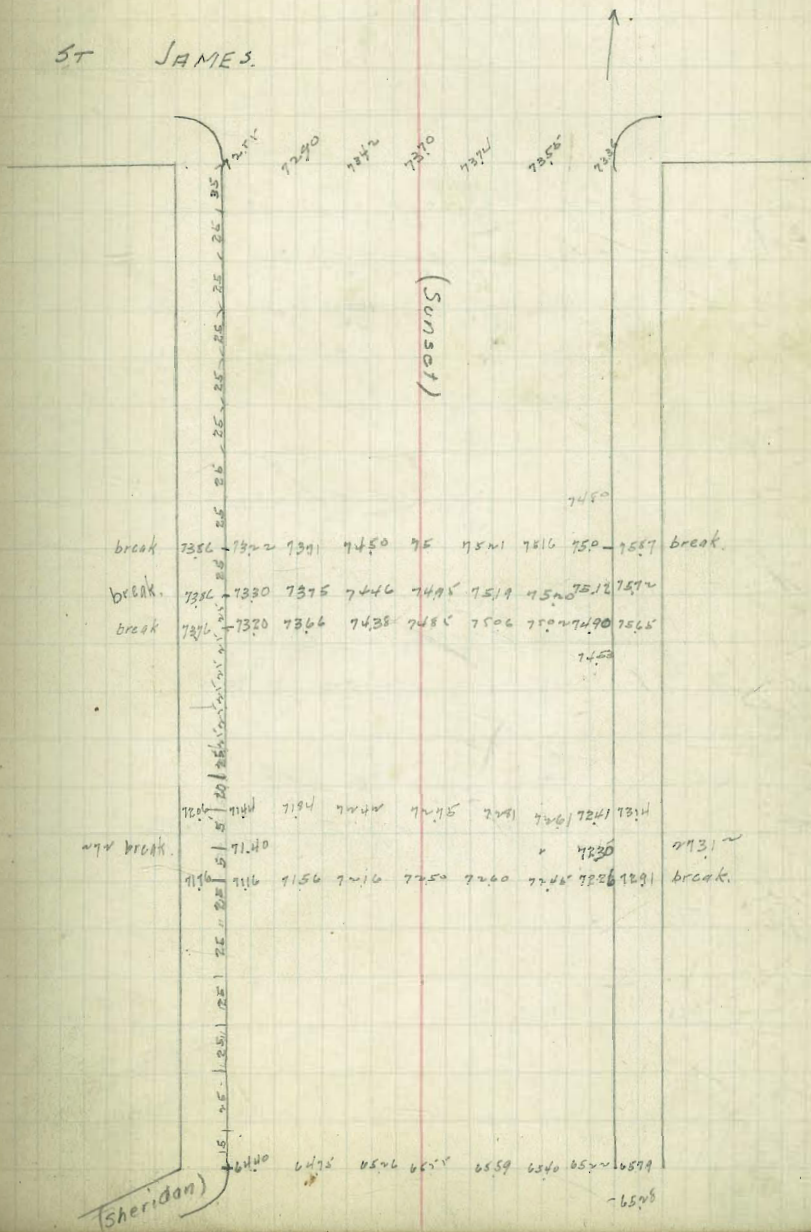 ST JAMES.
7255 7290 7342 7370 7374 7355 7335
35
25
25
25
25
25
25
25
(Sunset)
7480
break 7386 7322 7391 7450 75 7521 7516 750 7587 break.
25
break. 7386 7330 7375 7446 7495 7519 7520 7512 7572
break 7376 7320 7366 7438 7485 7506 7502 7490 7565
7453
25
20
7206 7144 7194 7242 7275 7281 7261 7241 7314
5
break. 71.40 7230
5
7176 7116 7156 7216 7250 7260 7245 7226 7291 break.
25
25
25
25
25
15
6440 6475 6526 6555 6559 6540 6522 6579
6528
(Sheridan)